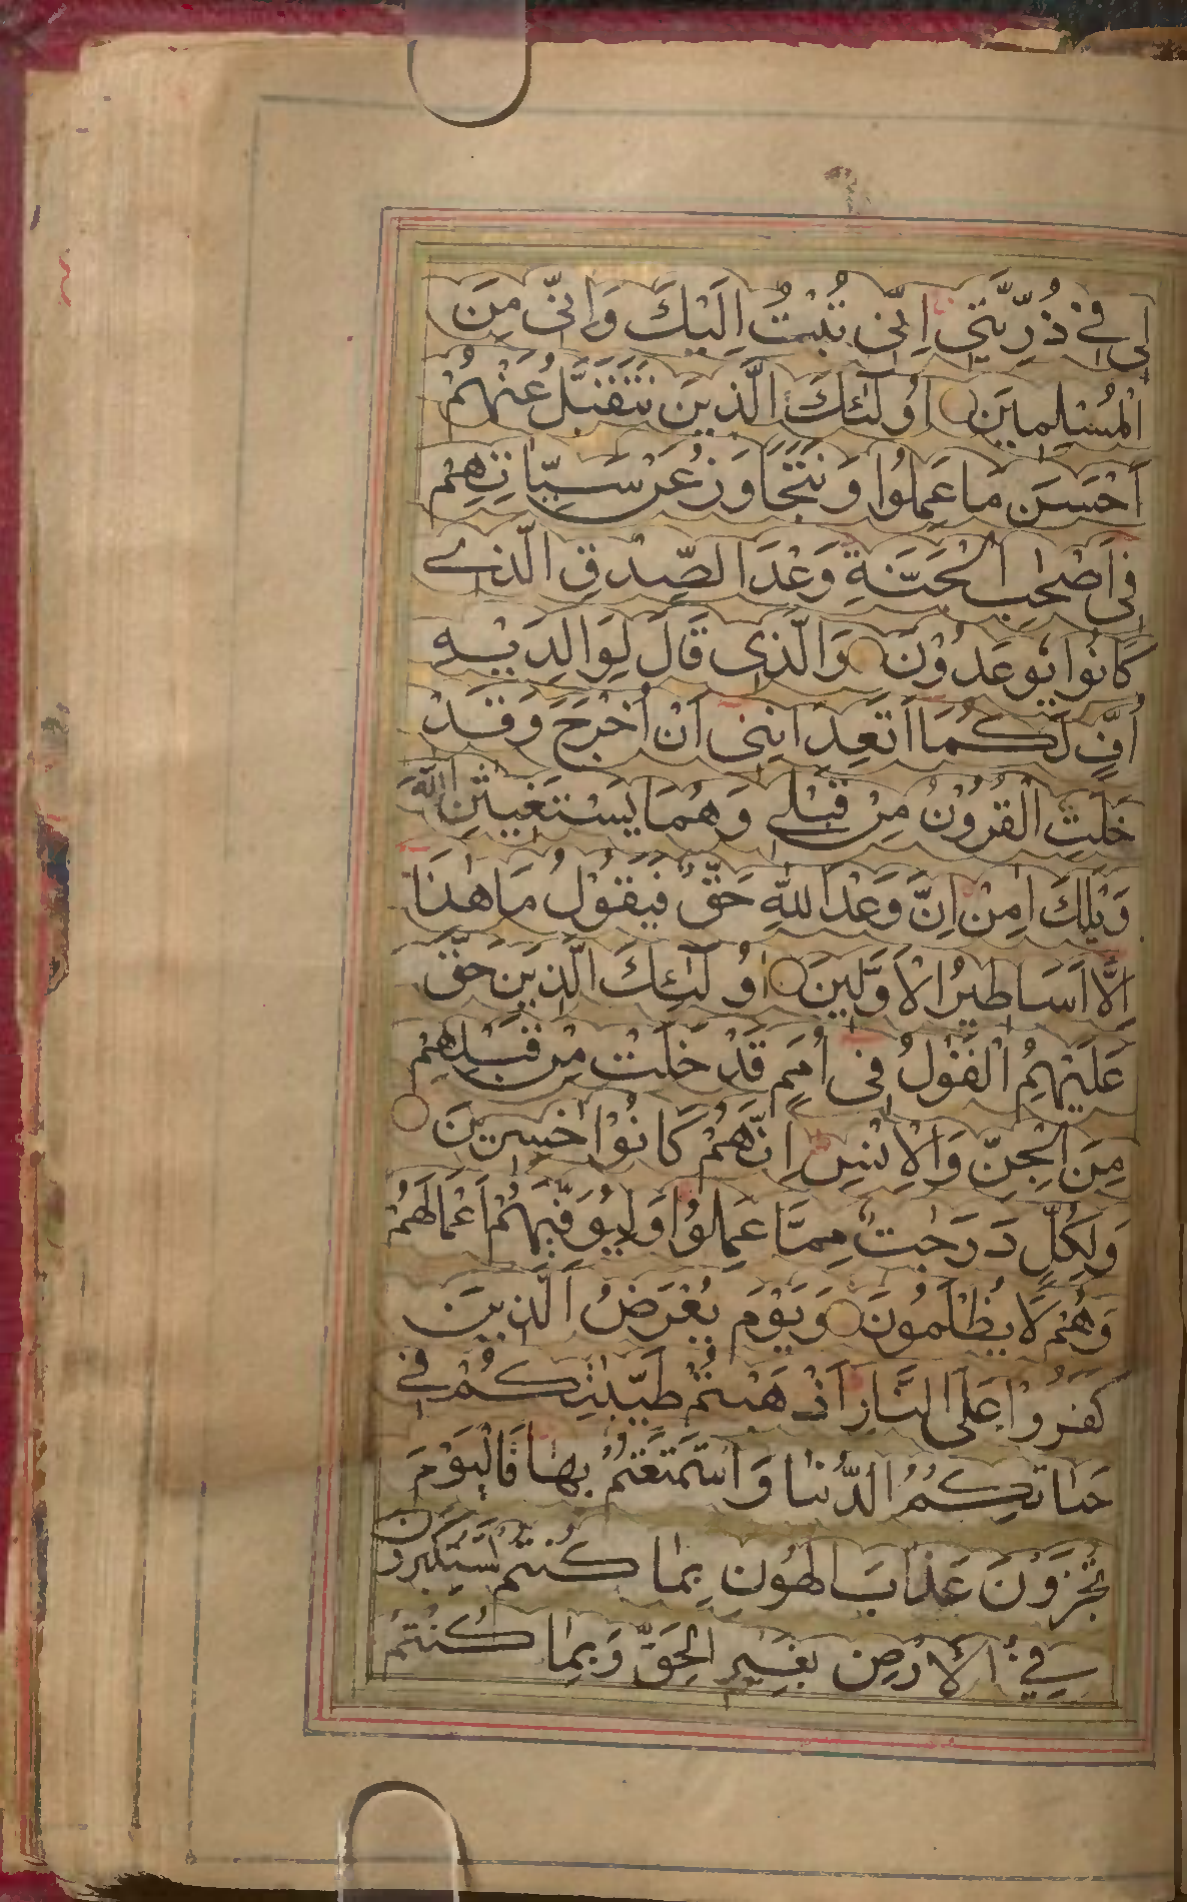 لِى فِى ذُرِّيَّتِى اِنِّى تُبْتُ اِلَيْكَ وَاِنِّى مِنَ
الْمُسْلِمِيْنَ اُولٰئِكَ الَّذِيْنَ نَتَقَبَّلُ عَنْهُمْ
اَحْسَنَ مَا عَمِلُوْا وَنَتَجَاوَزُ عَنْ سَيِّاٰتِهِمْ
فِى اَصْحٰبِ الْجَنَّةِ وَعْدَ الصِّدْقِ الَّذِى
كَانُوْا يُوْعَدُوْنَ وَالَّذِى قَالَ لِوَالِدَيْهِ
اُفٍّ لَّكُمَا اَتَعِدَانِنِى اَنْ اُخْرَجَ وَقَدْ
خَلَتِ الْقُرُوْنُ مِنْ قَبْلِى وَهُمَا يَسْتَغِيْثٰنِ اللّٰهَ
وَيْلَكَ اٰمِنْ اِنَّ وَعْدَ اللّٰهِ حَقٌّ فَيَقُوْلُ مَا هٰذَا
اِلَّا اَسَاطِيْرُ الْاَوَّلِيْنَ اُولٰئِكَ الَّذِيْنَ حَقَّ
عَلَيْهِمُ الْقَوْلُ فِى اُمَمٍ قَدْ خَلَتْ مِنْ قَبْلِهِمْ
مِنَ الْجِنِّ وَالْاِنْسِ اِنَّهُمْ كَانُوْا خٰسِرِيْنَ
وَلِكُلٍّ دَرَجٰتٌ مِمَّا عَمِلُوْا وَلِيُوَفِّيَهُمْ اَعْمَالَهُمْ
وَهُمْ لَا يُظْلَمُوْنَ وَيَوْمَ يُعْرَضُ الَّذِيْنَ
كَفَرُوْا عَلَى النَّارِ اَذْهَبْتُمْ طَيِّبٰتِكُمْ فِى
حَيَاتِكُمُ الدُّنْيَا وَاسْتَمْتَعْتُمْ بِهَا فَالْيَوْمَ
تُجْزَوْنَ عَذَابَ الْهُوْنِ بِمَا كُنْتُمْ تَسْتَكْبِرُوْنَ
فِى الْاَرْضِ بِغَيْرِ الْحَقِّ وَبِمَا كُنْتُمْ